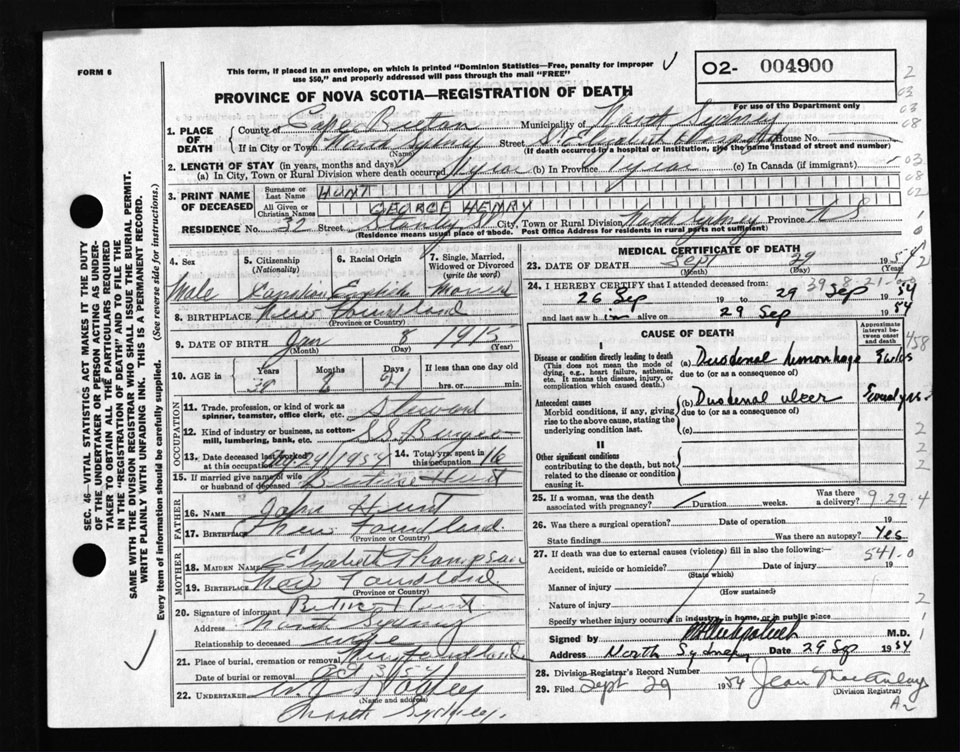 FORM 6
This form, if placed in an envelope, on which is printed "Dominion Statistics—Free, penalty for improper
use $50," and properly addressed will pass through the mail "FREE"
02- 004900
For use of the Department only
PROVINCE OF NOVA SCOTIA—REGISTRATION OF DEATH
1. PLACE OF DEATH
County of Cape Breton Municipality of North Sydney
If in City or Town North Sydney (Name) Street St Elizabeth Hospital House No.
(If death occurred in a hospital or institution, give the name instead of street and number)
2. LENGTH OF STAY (in years, months and days)
(a) In City, Town or Rural Division where death occurred (b) In Province (c) In Canada (if immigrant)
3. PRINT NAME OF DECEASED
Surname or Last Name HUNT
All Given or Christian Names GEORGE HENRY
RESIDENCE No. 32 Street Stanly St City, Town or Rural Division North Sydney Province N S
(Residence means usual place of abode. Post Office Address for residents in rural parts not sufficient)
4. Sex
Male
5. Citizenship (Nationality)
Canadian
6. Racial Origin
English
7. Single, Married, Widowed or Divorced (write the word)
Married
8. BIRTHPLACE New Foundland
(Province or Country)
9. DATE OF BIRTH Jan 8 1915
(Month) (Day) (Year)
10. AGE in
Years Months Days If less than one day old
39 8 21 hrs. or min.
OCCUPATION
11. Trade, profession, or kind of work as spinner, teamster, office clerk, etc. Steward
12. Kind of industry or business, as cotton-mill, lumbering, bank, etc. S.S.
13. Date deceased last worked at this occupation /1954
14. Total yrs. spent in this occupation 16
15. If married give name of wife or husband of deceased Hunt
FATHER
16. NAME John Hunt
17. BIRTHPLACE New Foundland
(Province or Country)
MOTHER
18. MAIDEN NAME Elizabeth Thompson
19. BIRTHPLACE New Foundland
(Province or Country)
20. Signature of informant Hunt
Address North Sydney
Relationship to deceased wife
21. Place of burial, cremation or removal Newfoundland
Date of burial or removal
22. UNDERTAKER
(Name and address)
North Sydney.
MEDICAL CERTIFICATE OF DEATH
23. DATE OF DEATH Sept 29 1954
(Month) (Day) (Year)
39-8-21
24. I HEREBY CERTIFY that I attended deceased from:
26 Sep 19 to 29 Sep 1954
and last saw him alive on 29 Sep 1954
CAUSE OF DEATH
Approximate interval between onset and death
I
Disease or condition directly leading to death
(This does not mean the mode of dying, e.g., heart failure, asthenia, etc. It means the disease, injury, or complication which caused death.)
(a) Duodenal hemorrhage
due to (or as a consequence of)
Antecedent causes
Morbid conditions, if any, giving rise to the above cause, stating the underlying condition last.
(b) Duodenal ulcer
due to (or as a consequence of)
(c)
II
Other significant conditions
contributing to the death, but not related to the disease or condition causing it.
25. If a woman, was the death associated with pregnancy? Duration weeks. Was there a delivery?
9.29.4
26. Was there a surgical operation? Date of operation 19
State findings Was there an autopsy? Yes
27. If death was due to external causes (violence) fill in also the following:—
541-0
Accident, suicide or homicide? Date of injury 19
(State which)
Manner of injury
(How sustained)
Nature of injury
Specify whether injury occurred in industry, in home, or in public place
Signed by M.D.
Address North Sydney Date 29 Sep 1954
28. Division Registrar's Record Number
29. Filed Sept 29 1954 Jean
(Division Registrar)
SEC. 46—VITAL STATISTICS ACT MAKES IT THE DUTY
OF THE UNDERTAKER OR PERSON ACTING AS UNDER-
TAKER TO OBTAIN ALL THE PARTICULARS REQUIRED
IN THE "REGISTRATION OF DEATH" AND TO FILE THE
SAME WITH THE DIVISION REGISTRAR WHO SHALL ISSUE THE BURIAL PERMIT.
WRITE PLAINLY WITH UNFADING INK. THIS IS A PERMANENT RECORD.
Every item of information should be carefully supplied. (See reverse side for instructions.)